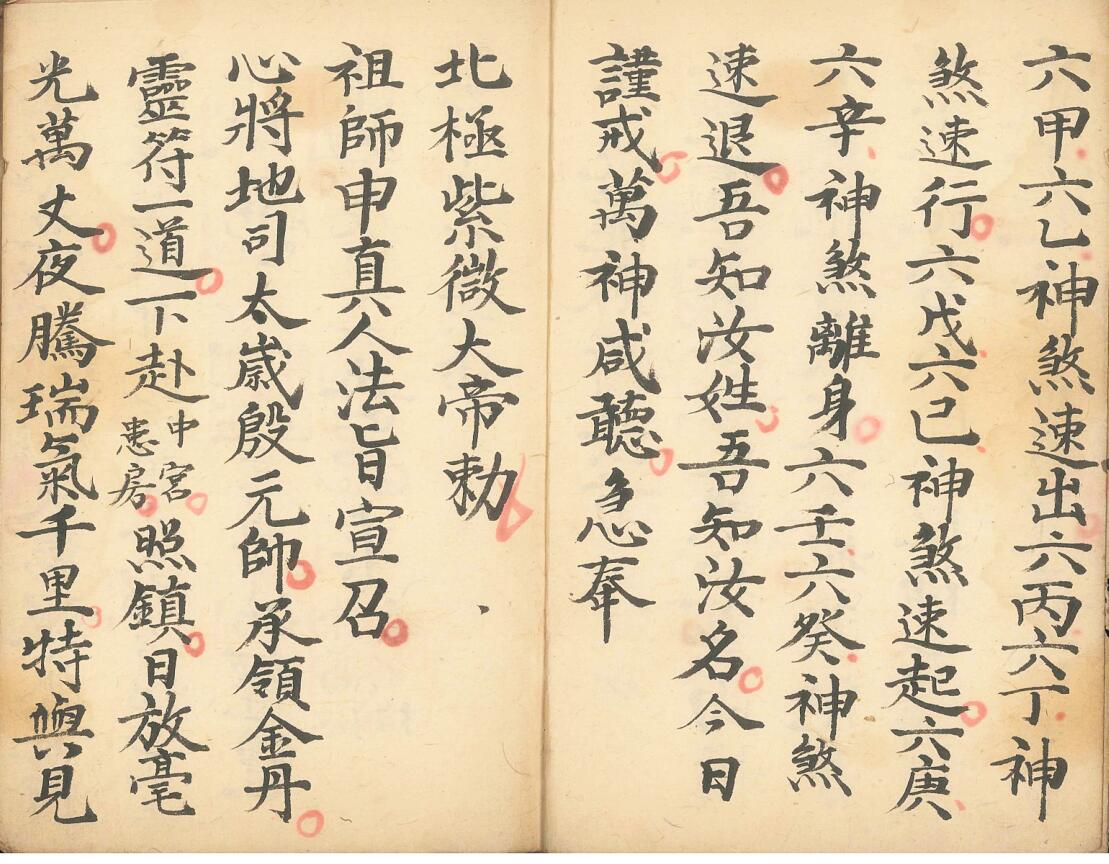 六甲六乙神煞速出六丙六丁神
煞速行六戊六己神煞速起六庚
六辛神煞離身六壬六癸神煞
速退吾知汝姓吾知汝名今日
謹戒萬神咸聽急奉
北極紫微大帝勅
祖師申真人法旨宣召
心將地司太歲殷元帥承領金丹
靈符一道下赴中宮患房照鎮日放毫
光萬丈夜騰瑞氣千里特與見